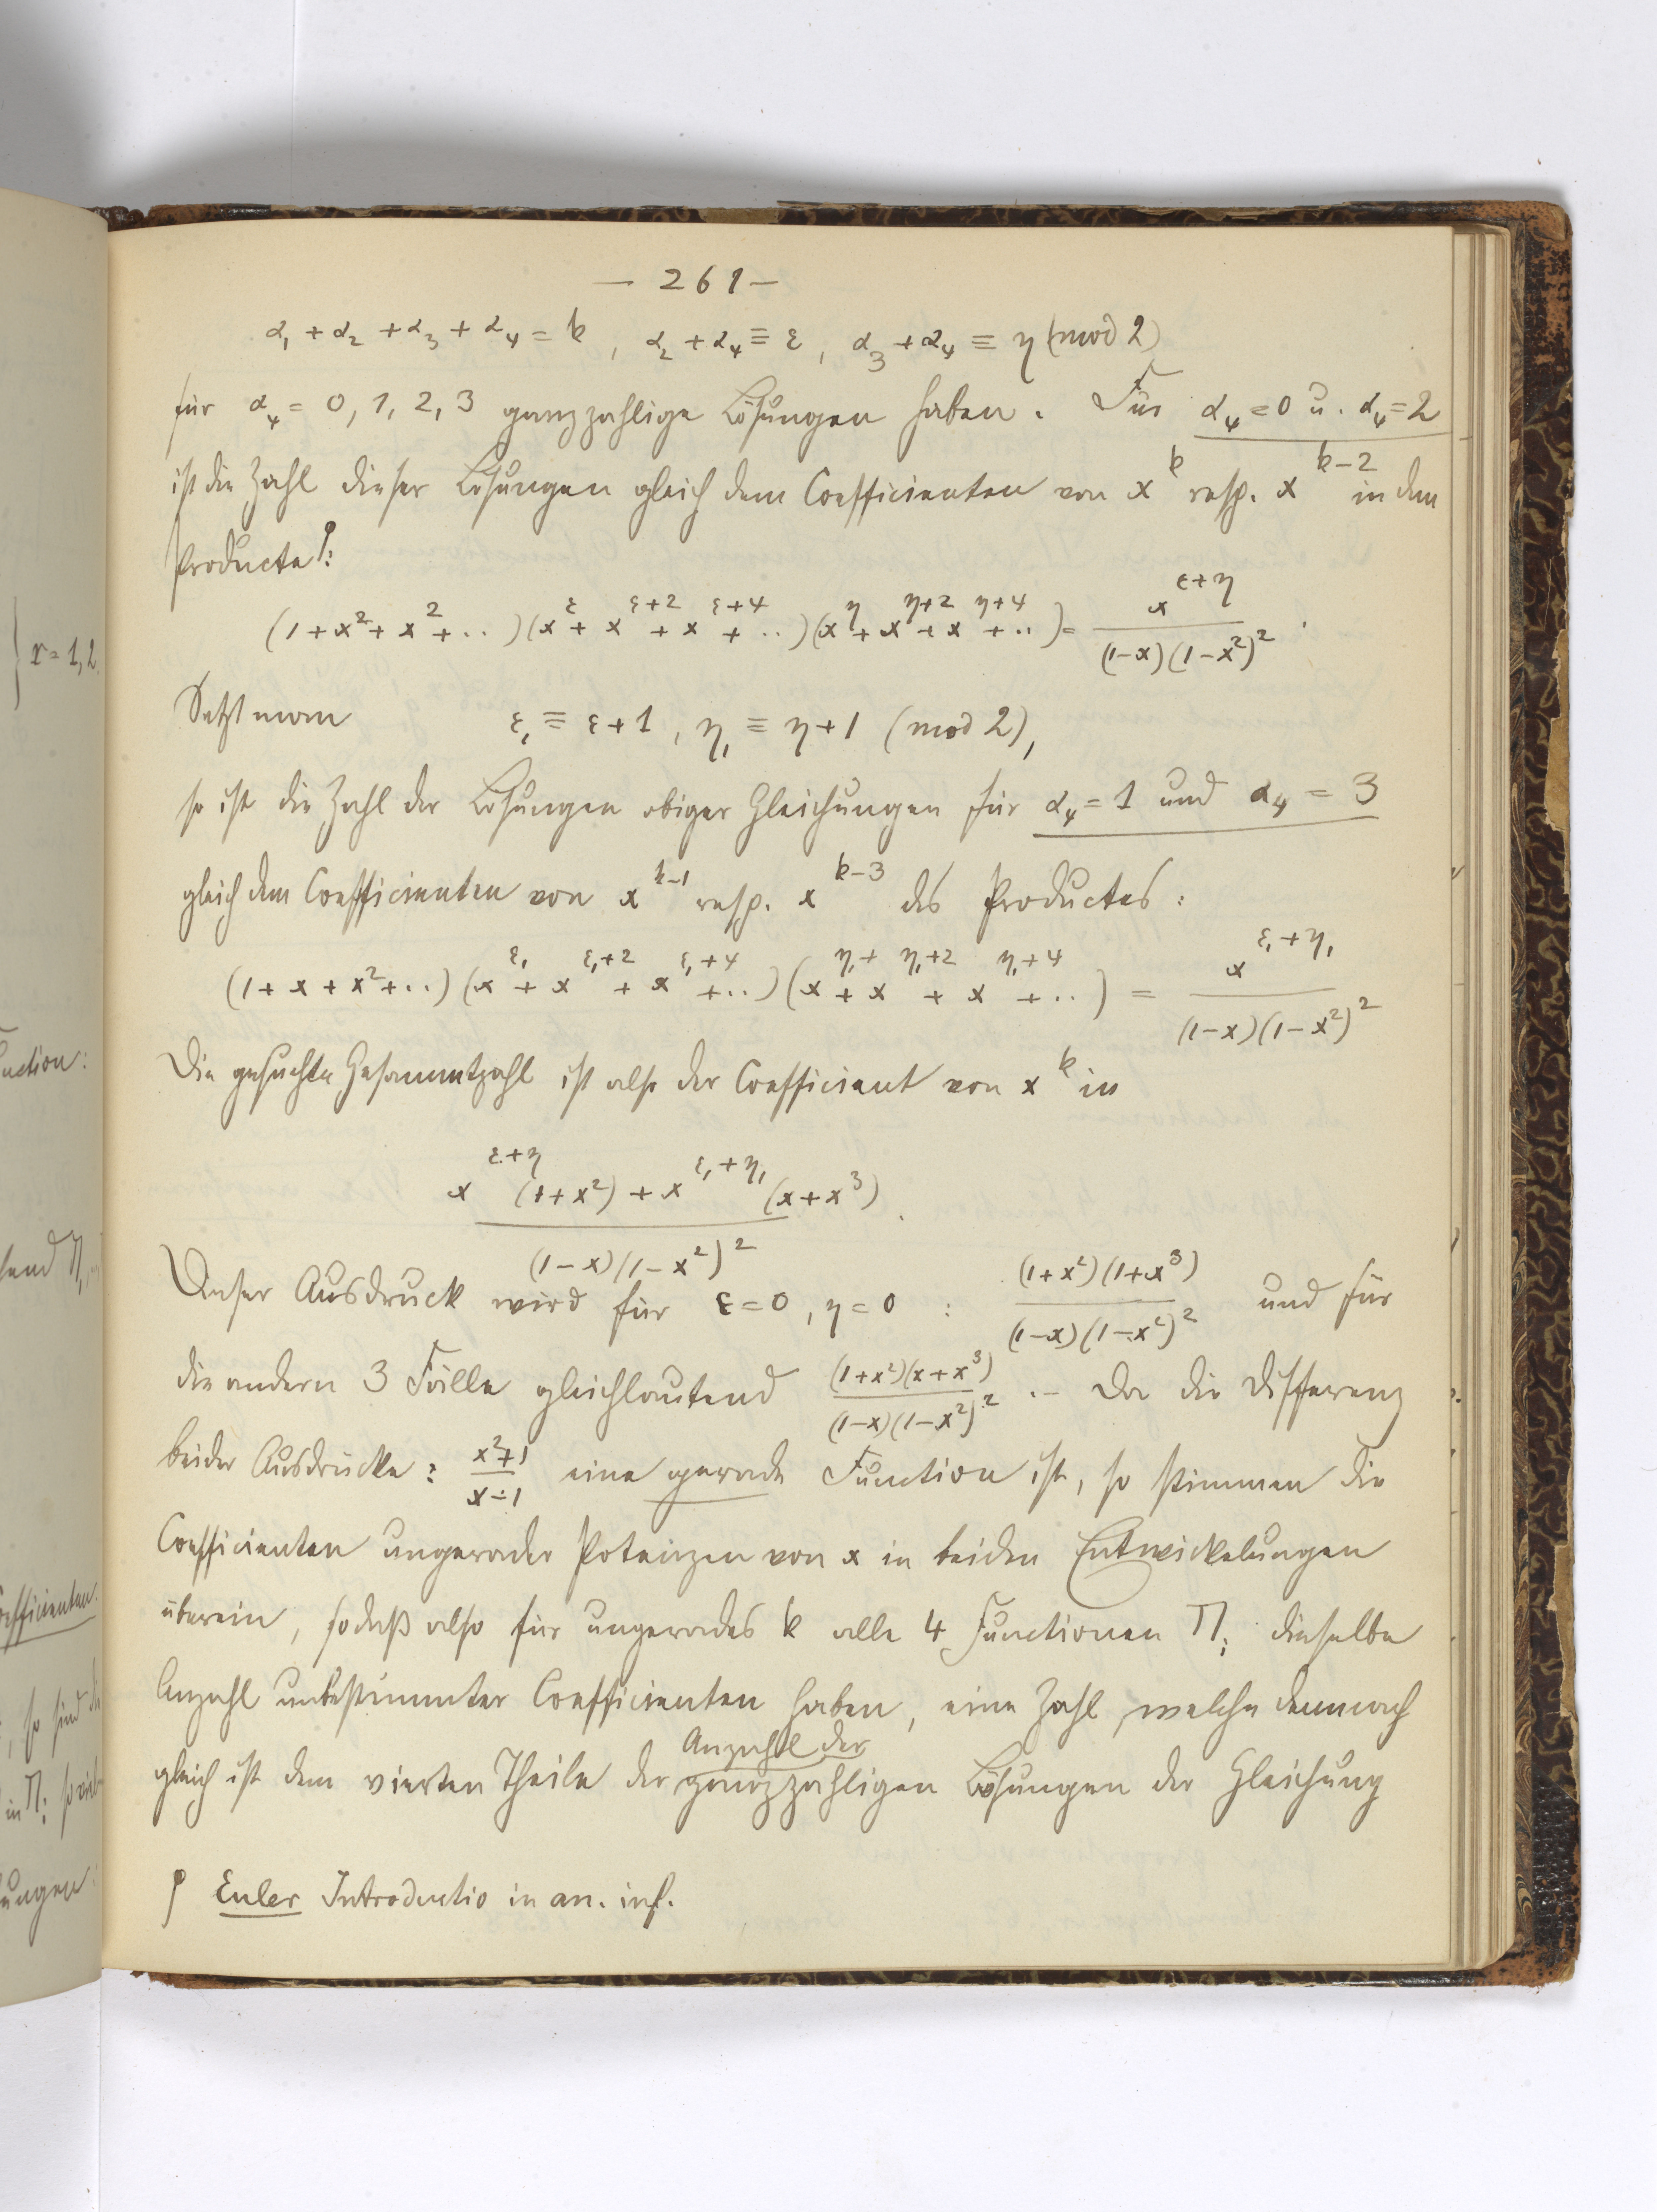 — 261 —
α₁ + α₂ + α₃ + α₄ = k, α₂ + α₄ ≡ ε, α₃ + α₄ ≡ η (mod 2)
für α₄ = 0, 1, 2, 3 ganzzahlige Lösungen haben. Für α₄ = 0 u. α₄ = 2
ist die Zahl dieser Lösungen gleich dem Coefficienten von x^k resp. x^{k-2} in dem
Producte ꝉ:
(1 + x² + x² + ..)(x^ε + x^{ε+2} + x^{ε+4} + ..)(x^η + x^{η+2} + x^{η+4} + ..) = x^{ε+η} / (1-x)(1-x²)².
Setzt man ε₁ ≡ ε+1, η₁ ≡ η+1 (mod 2),
so ist die Zahl der Lösungen obiger Gleichungen für α₄ = 1 und α₄ = 3
gleich dem Coefficienten von x^{k-1} resp. x^{k-3} des Productes:
(1 + x + x² + ..)(x^{ε₁} + x^{ε₁+2} + x^{ε₁+4} + ..)(x^{η₁+} + x^{η₁+2} + x^{η₁+4} + ..) = x^{ε₁+η₁} / (1-x)(1-x²)²
Die gesuchte Gesammtzahl ist also der Coefficient von x^k in
x^{ε+η}(1+x²) + x^{ε₁+η₁}(x+x³) / (1-x)(1-x²)².
Dieser Ausdruck wird für ε=0, η=0: (1+x²)(1+x³) / (1-x)(1-x²)² und für
die andern 3 Fälle gleichlautend (1+x²)(x+x³) / (1-x)(1-x²)² .– Da die Differenz
beider Ausdrücke: x²+1 / x-1 eine gerade Function ist, so stimmen die
Coefficienten ungerader Potenzen von x in beiden Entwickelungen
überein, sodaß also für ungerades k alle 4 Functionen Π_i dieselbe
Anzahl unbestimmter Coefficienten haben, eine Zahl, welche demnach
gleich ist dem vierten Theile der Anzahl der ganzzahligen Lösungen der Gleichung
ꝉ Euler Introductio in an. inf.
r = 1, 2
uction:
oefficienten.
, so sind di
in Π_i
ungen